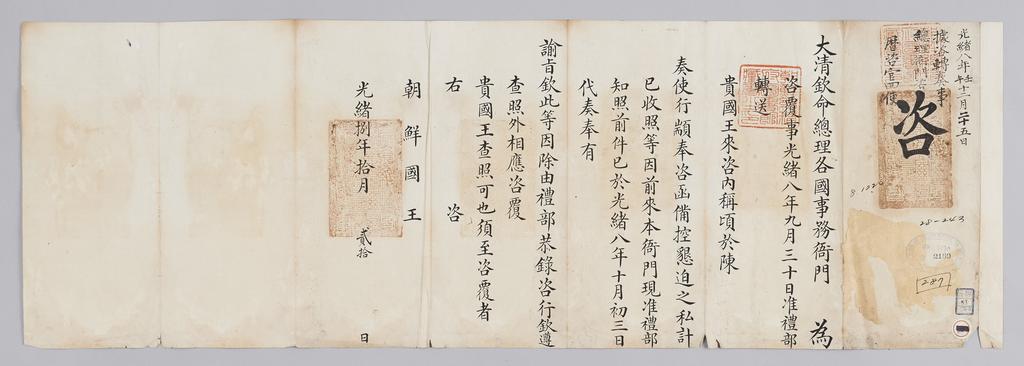 光緒八年壬午十二月二十五日
據咨轉奏事
總理衙門咨
曆咨官回便
咨
8-1020
28-243
2199
287
大清欽命總理各國事務衙門 為
咨覆事光緒八年九月三十日准禮部
轉送
貴國王來咨內稱頃於陳
奏使行顓奉咨函備控懇迫之私計
已收照等因前來本衙門現准禮部
知照前件已於光緒八年十月初三日
代奏奉有
諭旨欽此等因除由禮部恭錄咨行欽遵
查照外相應咨覆
貴國王查照可也須至咨覆者
右 咨
朝鮮國王
光緒捌年拾月 貳拾 日